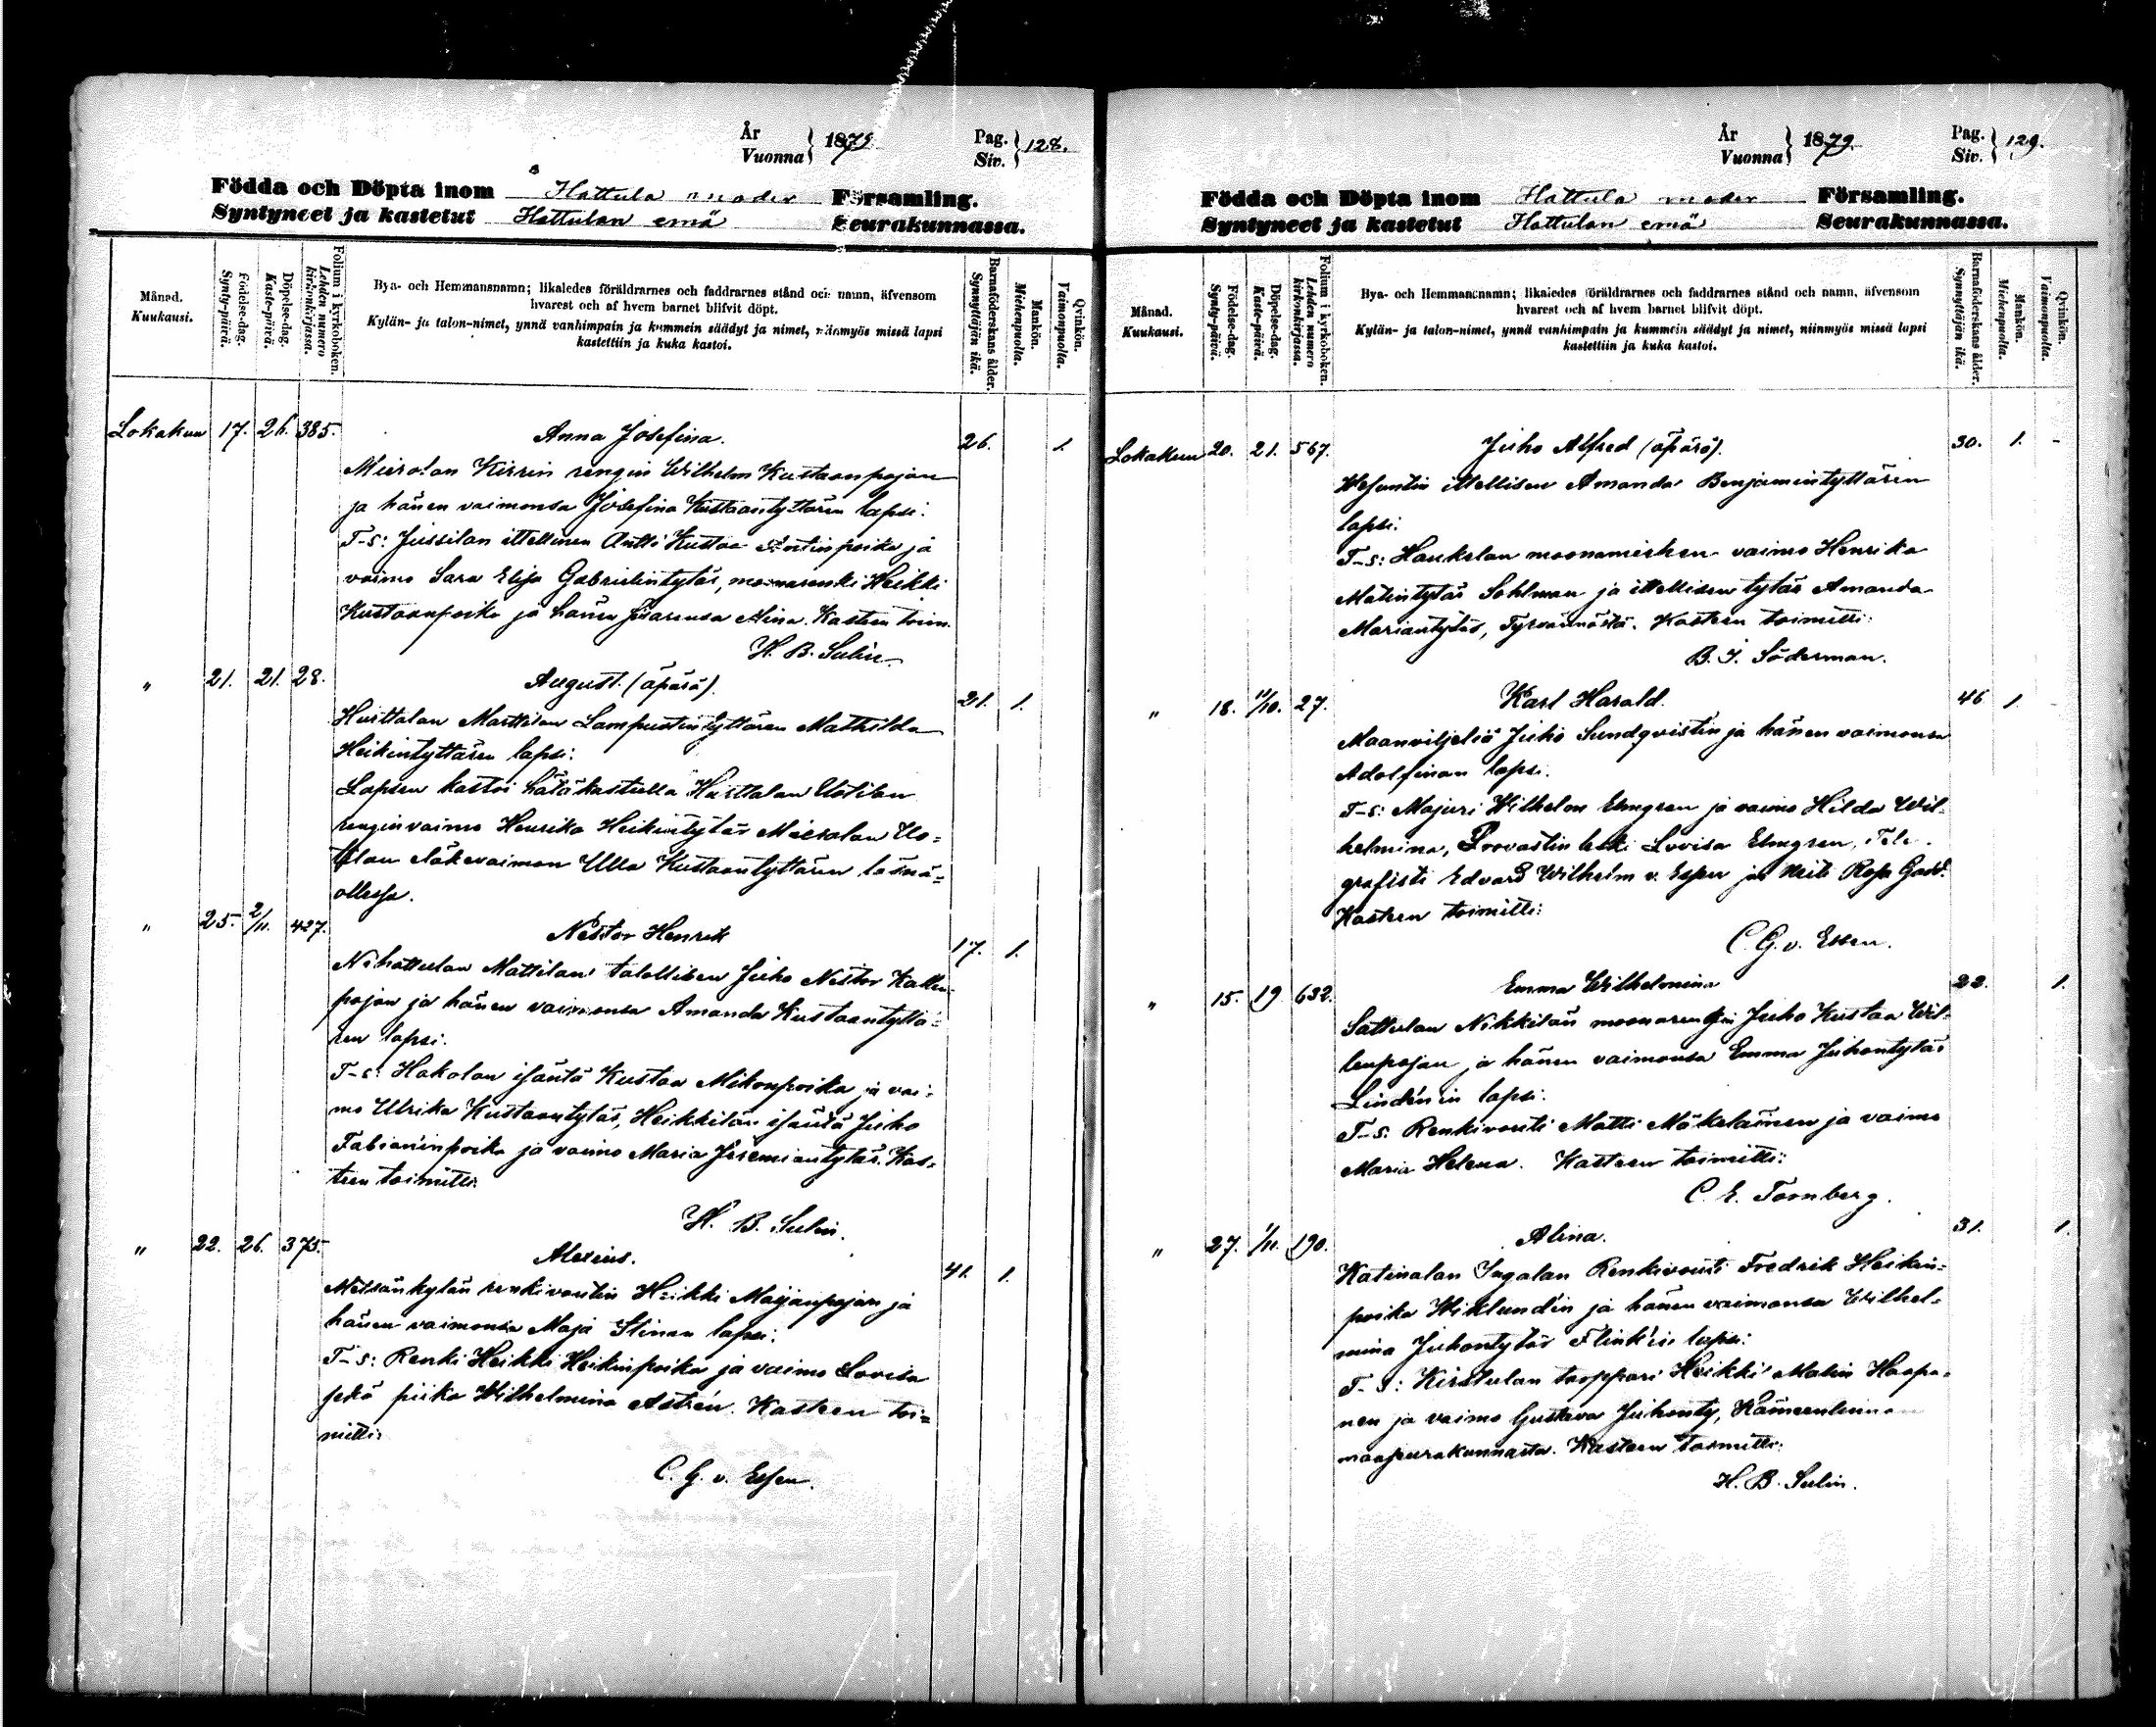 År
Vuonna } 1879. Pag.
Siv. } 128.
Födda och Döpta inom Hattula moder Församling.
Syntyneet ja kastetut Hattulan emä Seurakunnassa.
Månad.
Kuukausi.
Födelse-dag.
Synty-päivä.
Döpelse-dag.
Kaste-päivä.
Folium i kyrkoboken.
Lehden numero
kirkonkirjassa.
Bya- och Hemmansnamn; likaledes föräldrarnes och faddrarnes stånd och namn, äfvensom
hvarest och af hvem barnet blifvit döpt.
Kylän- ja talon-nimet, ynnä vanhimpain ja kummein säädyt ja nimet, niinmyös missä lapsi
kastettiin ja kuka kastoi.
Barnaföderskans ålder.
Synnyttäjän ikä.
Mankön.
Miehenpuolta.
Qvinkön.
Vaimonpuolta.
Lokakuu 17. 26. 385. Anna Josefina. 26. 1.
Mierolan Kirrin rengin Wilhelm Kustaanpojan
ja hänen vaimonsa Josefina Kustaantyttären lapsi.
T-s: Jussilan ittellinen Antti Kustaa Antinpoika ja
vaimo Sara Elja Gabrielintytär, moonarenki Heikki
Kustaanpoika ja hänen sisarensa Mina. Kasteen toim.
H. B. Sulin.
" 21. 21. 28. August. (äpärä). 21. 1.
Hurttalan Marttilan Lampuotintyttären Mathilda
Heikintyttären lapsi:
Lapsen kastoi hätäkasteella Hurttalan Uotilan
renginvaimo Henrika Heikintytär Mierolan Uo=
tilan eläkevaimon Ulla Kustaantyttären läsnä=
ollessa.
" 25. 2/11. 427. Nestor Henrik 17. 1.
Nihattulan Mattilan talollisen Juho Nestor Kallen-
pojan ja hänen vaimonsa Amanda Kustaantyttä=
ren lapsi.
T-s: Hakolan isäntä Kustaa Mikonpoika ja vai=
mo Ulrika Kustaantytär, Heikkilän isäntä Juho
Fabianinpoika ja vaimo Maria Jeremiantytär. Kas=
teen toimitti:
H. B. Sulin.
" 22. 26. 375. Alexius. 41. 1.
Metsänkylän renkivoutin Heikki Maijanpojan ja
hänen vaimonsa Maja Stinan lapsi.
T-s: Renki Heikki Heikinpoika ja vaimo Lovisa
sekä piika Wilhelmina Astrén. Kasteen toi=
mitti:
C. G. v. Essen.
År
Vuonna } 1879. Pag.
Siv. } 129.
Födda och Döpta inom Hattula moder Församling.
Syntyneet ja kastetut Hattulan emä Seurakunnassa.
Månad.
Kuukausi.
Födelse-dag.
Synty-päivä.
Döpelse-dag.
Kaste-päivä.
Folium i kyrkoboken.
Lehden numero
kirkonkirjassa.
Bya- och Hemmansnamn; likaledes föräldrarnes och faddrarnes stånd och namn, äfvensom
hvarest och af hvem barnet blifvit döpt.
Kylän- ja talon-nimet, ynnä vanhimpain ja kummein säädyt ja nimet, niinmyös missä lapsi
kastettiin ja kuka kastoi.
Barnaföderskans ålder.
Synnyttäjän ikä.
Mankön.
Miehenpuolta.
Qvinkön.
Vaimonpuolta.
Lokakuu 20. 21. 567. Juho Alfred (äpärä). 30. 1. -
ittellisen Amanda Benjamintyttären
lapsi.
T-s: Haukelan moonamiehen vaimo Henrika
Matintytär Sohlman ja ittellisen tytär Amanda
Mariantytär, Tyrvännöstä. Kasteen toimitti:
B. I. Söderman.
" 18. 11/10. 27. Karl Harald. 46 1
Maanviljeliä Juho Sundqvistin ja hänen vaimonsa
Adolfinan lapsi.
T-s: Majuri Wilhelm Elmgren ja vaimo Hilda Wil-
helmina, Provastin leski Lovisa Elmgren, Tele-
grafisti Edvard Wilhelm v. Essen ja Neiti Rosa Gadd.
Kasteen toimitti:
C. G. v. Essen.
" 15. 19 632. Emma Wilhelmina 22. 1.
Sattulan Nikkilän moonarengin Juho Kustaa Wil=
lenpojan ja hänen vaimonsa Emma Juhontytär
Lindénin lapsi.
T-s: Renkivouti Matti Mäkeläinen ja vaimo
Maria Helena. Kasteen toimitti:
C. E. Tornberg.
" 27. 1/11. 190. Alina. 31. 1.
Katinalan Ingalan Renkivouti Fredrik Heikin=
poika Wiklund'in ja hänen vaimonsa Wilhel=
mina Juhontytär Flink'in lapsi:
T-s: Kirstulan torppari Heikki Matin Haapa=
nen ja vaimo Gustava Juhonty, Hämeenlinnan
maaseurakunnasta. Kasteen toimitti:
H. B. Sulin.